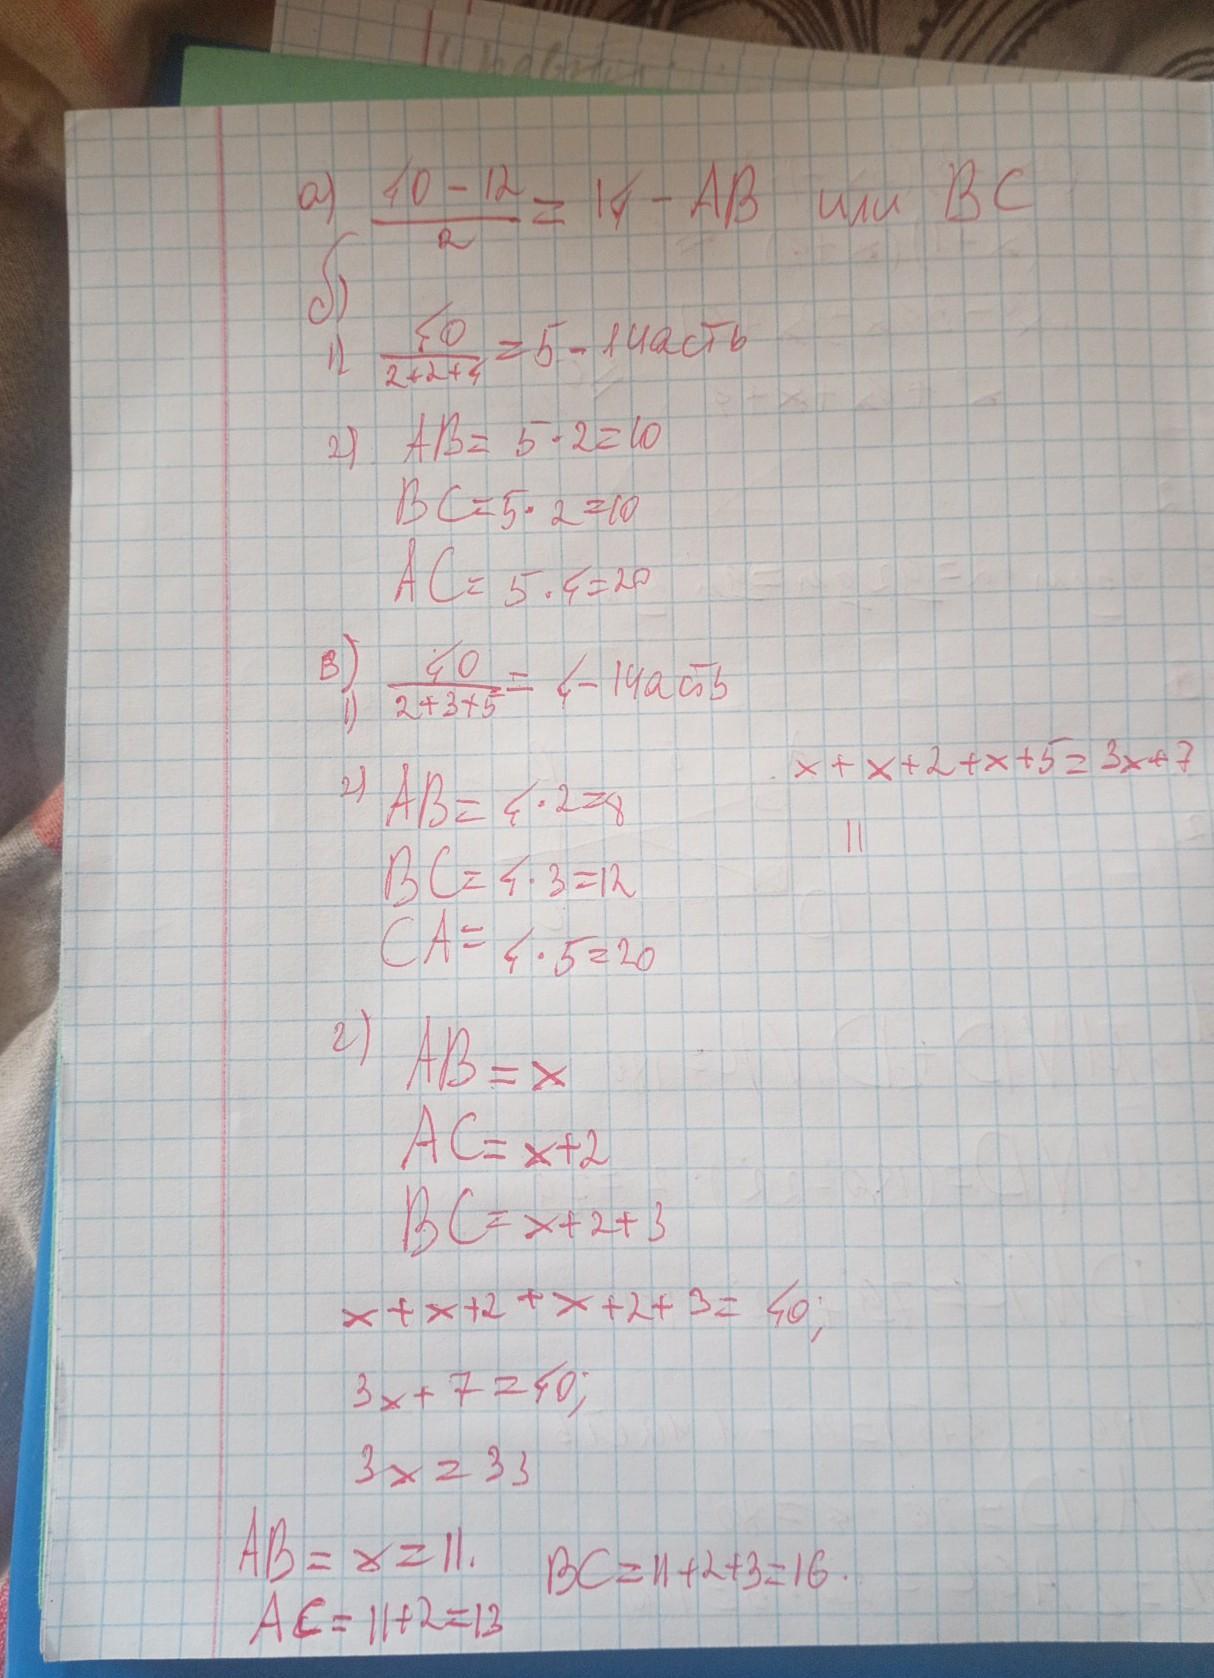 а) 40-12/2 = 14 - AB или BC
б)
1) 40/2+2+4 = 5 - 1 часть
2) AB = 5·2=10
BC=5·2=10
AC= 5·4=20
в)
1) 40/2+3+5 = 4 - 1 часть
x+x+2+x+5=3x+7
2) AB= 4·2=8
11
BC= 4·3=12
CA= 4·5=20
г) AB=x
AC=x+2
BC=x+2+3
x+x+2+x+2+3= 40;
3x+7=40;
3x=33
AB=x=11. BC=11+2+3=16.
AC=11+2=13